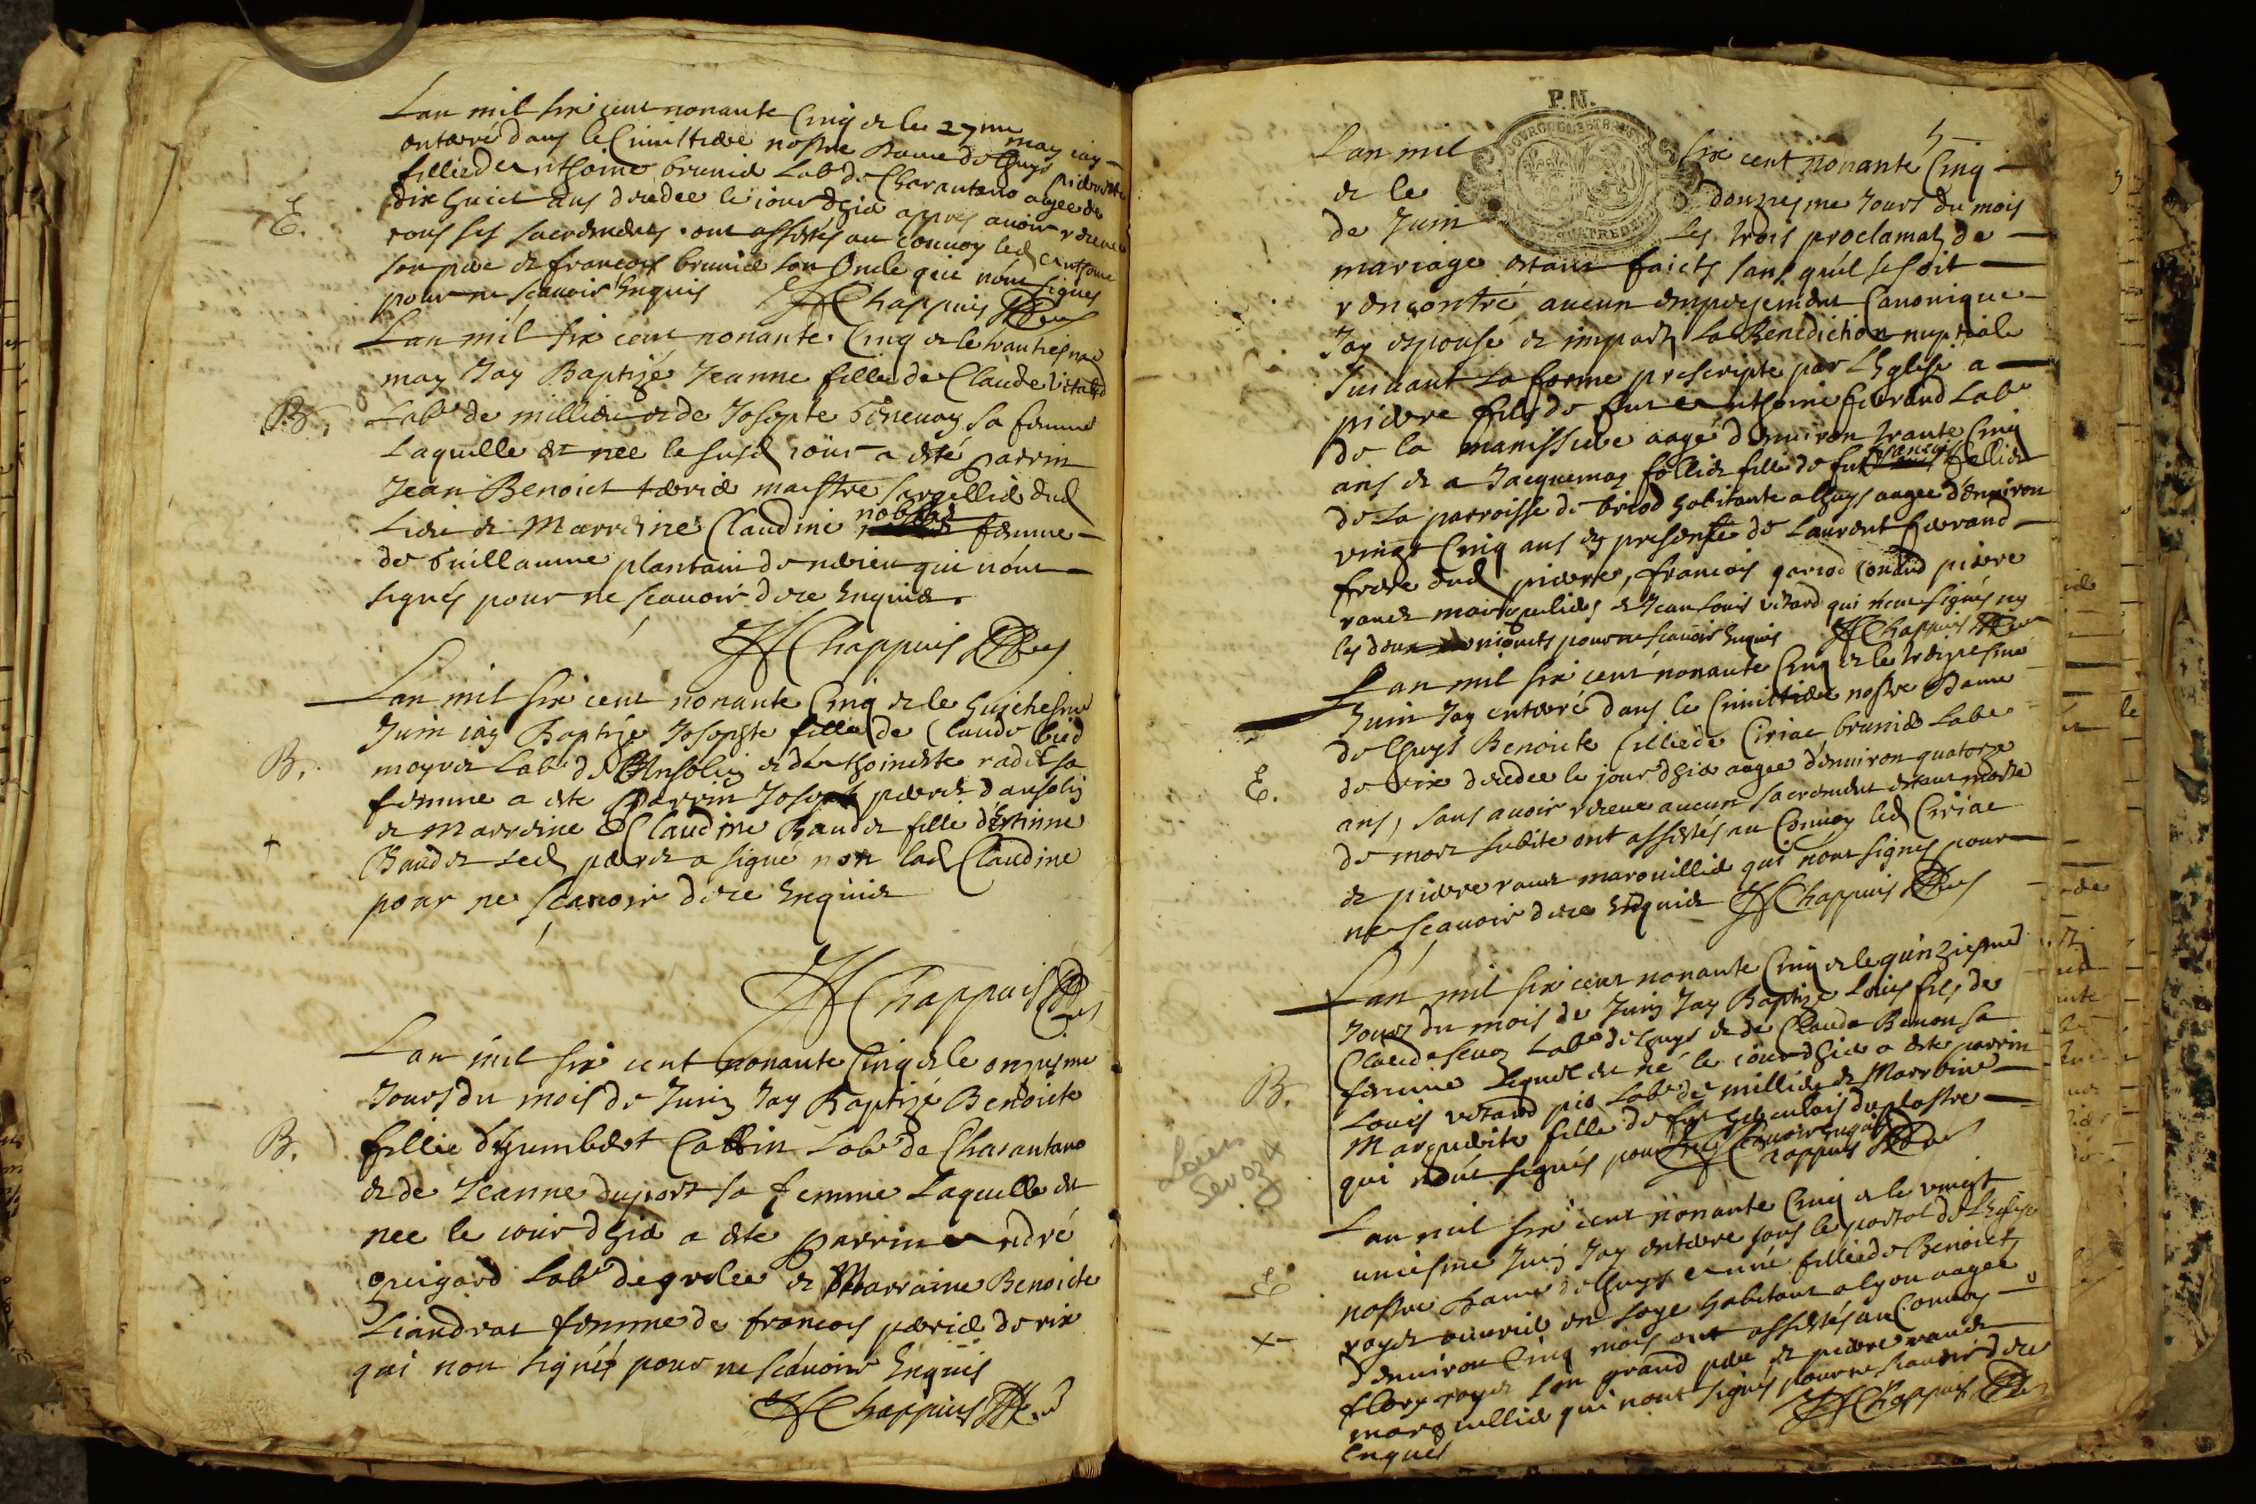 Lan mil six cent nonante Cinq et le 27me may iay
enterré dans le Cimittiere nostre Dame de Lhuys
fillie de Anthoine brunie Labr de Charantano agee de
dix huict ans decedee le jour dhier appres avoir receu
E. tous ses sacrements ont assistés au convoy led Anthoine
son pere et francois brunie son Oncle qui nont signes
pour ne scavoir Enquis JHChappuis
Lan mil six cent nonante Cinq et le trantiesme
may Jay Baptizé Jeanne fille de Claude vitard
B. Labr de millieu et de Josepte Genevay sa femme
Laquelle est nee le susd jour a esté parrin
Jean Benoict maistre dud
Lieu et Marreine Claudine femme
de Guillaume plantain de qui nont
signés pour ne scavoir de ce Enquis
JHChappuis
Lan mil six cent nonante Cinq et le huictiesme
Juin iay Baptizé Josephte fillie de Claude
B. moyret Labr de et de Anthoinette radit sa
femme a este Parrin Joseph dansolin
et Marreine Claudine Baudet fille d'Estienne
+ Baudet Led a signé non lad Claudine
pour ne scavoir de ce Enquise
JHChappuis
Lan mil six cent nonante Cinq et le onziesme
Jours du mois de Juin Jay Baptizé Benoicte
B. fillie d'humbert Cattin Labr de Charantano
et de Jeanne duport sa femme Laquelle est
nee le jour dhier a este parrin André
guigard Labr de et Marraine Benoicte
Liandrat femme de francois de rix
qui non signés pour ne scavoir Enquis
JHChappuis
P.N.
5
Lan mil six cent nonante Cinq
et le douzresme Jours du mois
de Juin Les trois proclamats de
mariage estant faicts sans quil se soit
rencontré aucun empeschement Canonique
Jay espousé et imparti La Benediction nuptiale
suivant La forme prescripte par LEglise a
pierre fils de feu Anthoine ferrand Labr
de la manissiere aagé denviron trante Cinq
ans et a Jacquemaz follict fille de feu francois follict
de La parroisse de briod habitante a Lhuys aagee d'environ
vingt Cinq ans en presense de Laurent ferrand
frere dud pierre, francois gariod pierre
ravet marguilier et Jean Louis vitard qui nont signés ny
les pour ne scavoir Enquis JHChappuis
Lan mil six cent nonante Cinq et le treziesme
Juin Jay enterré dans le Cimittiere nostre Dame
de Lhuys Benoicte filliede Ciriac brunie Labr
E. de rix decedee le jour dhier aagee d'environ quatorze
ans, sans avoir receu aucun sacrement estant morte
de mort subite ont assistés au Convoy led Ciriac
et pierre ravet marouillie qui nont signes pour
ne scavoir de ce Enquis JHChappuis
Lan mil six cent nonante Cinq et le quinziesme
Jours du mois de Juin Jay Baptizé Louis fils de
Claude sevoz Labr de Lhuys et de Claude Benon sa
B. femme Lequel est né le jour dhier a este parrin
Louis vitard Labr de millieu et Marrine
Louis Sevoz Marguerite fille de feu
qui nont signés pour ne scavoir Enquis Chappuis
Lan mil six cent nonante Cinq et le vingt
E uniesme Juin Jay enterre sous le portal de LEglise
nostre Dame de Lhuys Anne fillie de Benoict
X royet ouvrié en soye habitant a Lyon aagee
denviron Cinq mois ont assistés au Convoy
royet son grand pere et pierre ravet
marguillie qui nont signés pour ne scavoir de ce
Enquis JHChappuis